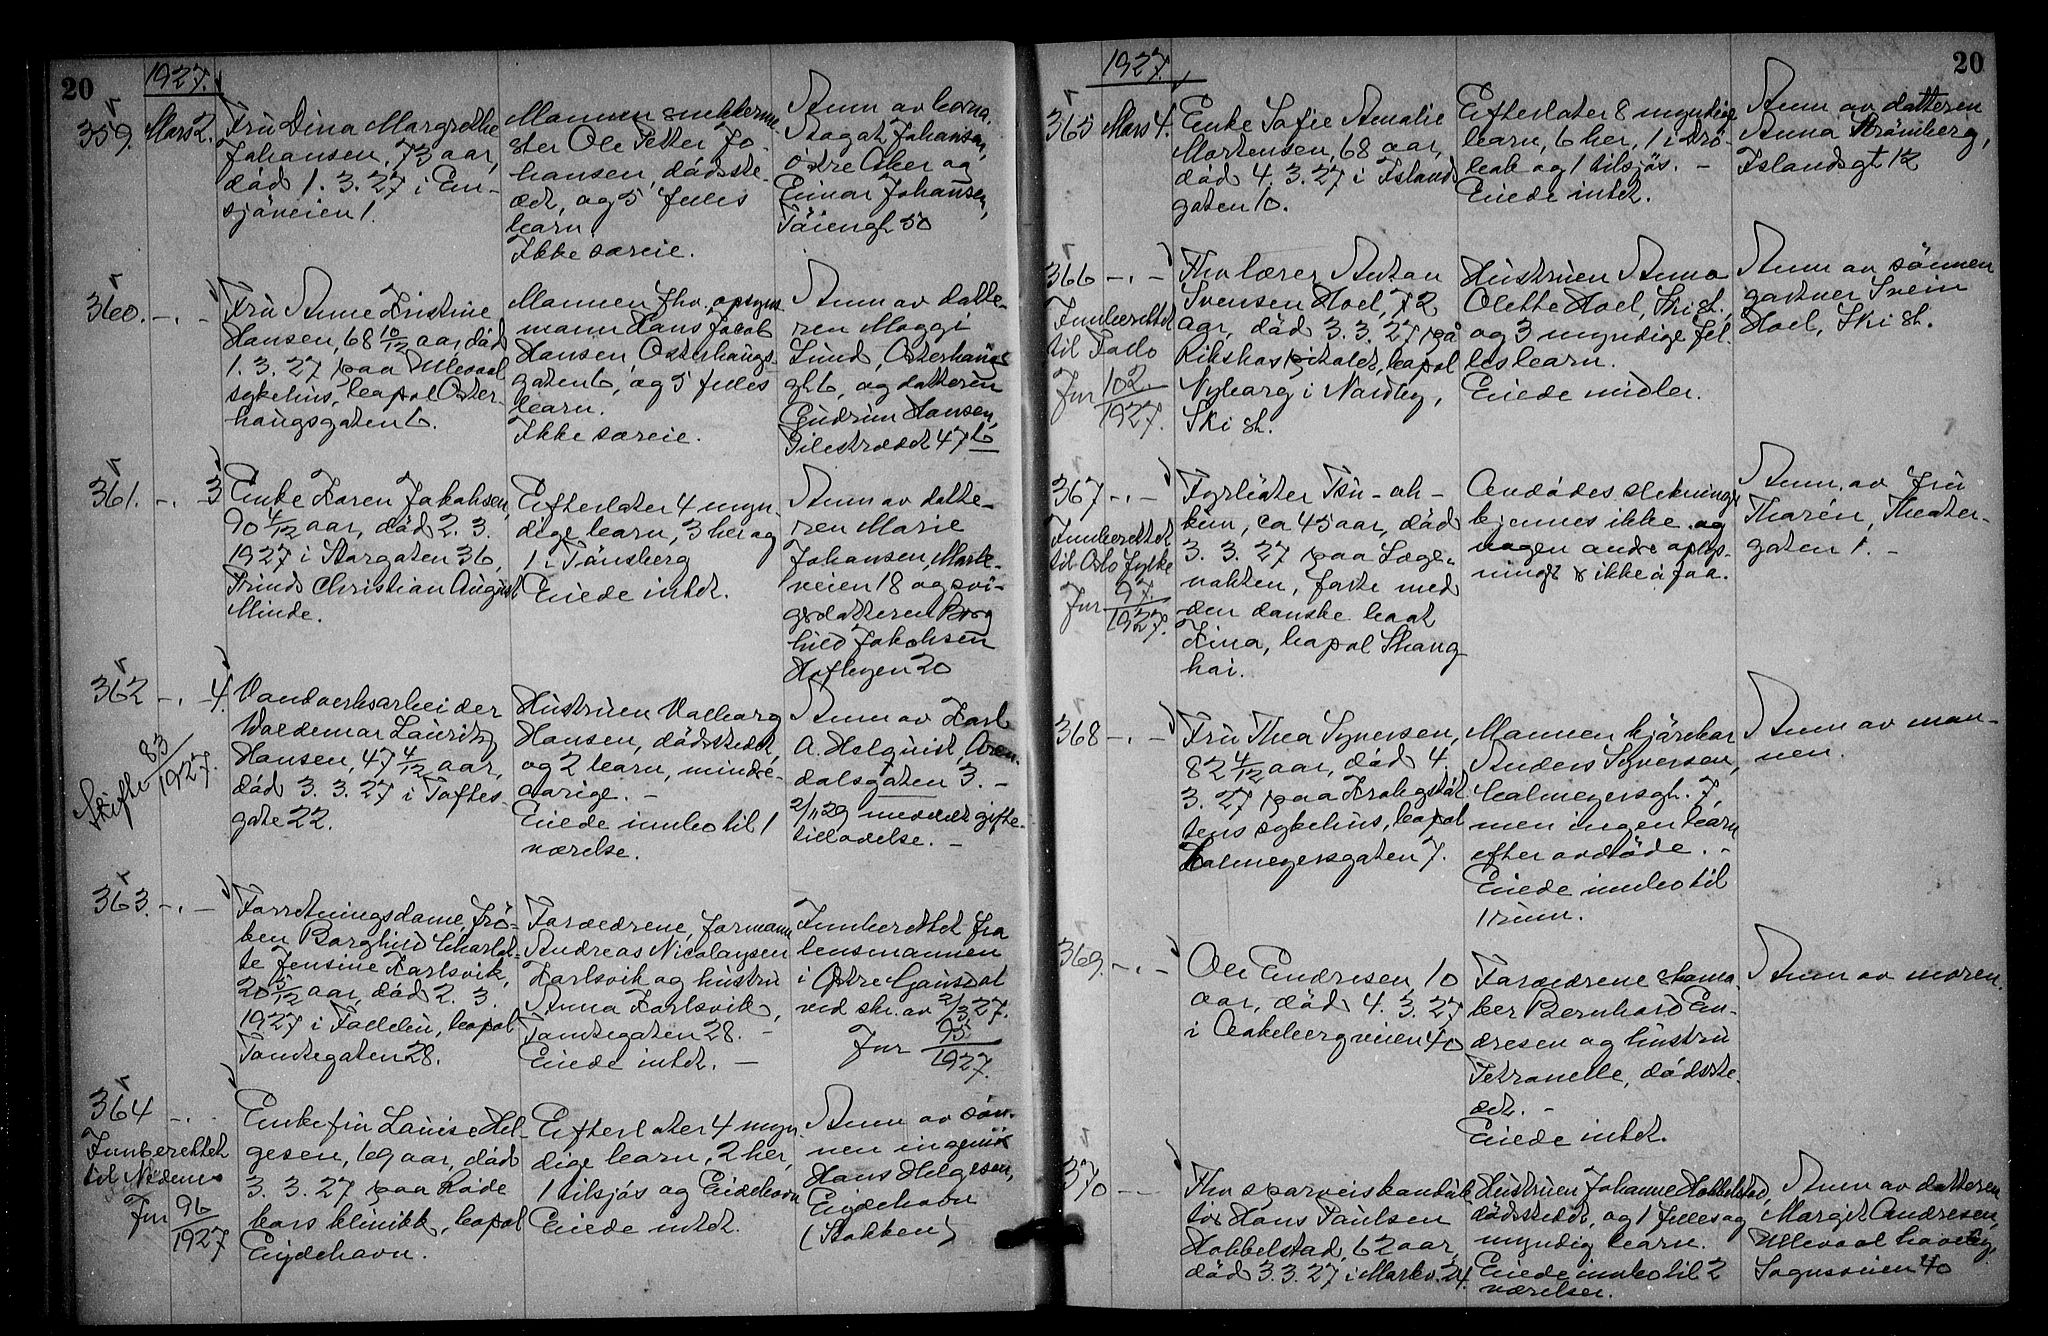 20
1927.
359. Mars 2.
Fru Dina Margrethe
Johansen, 73 aar,
død 1. 3. 27 i En-
sjøveien 1.
Mannen snekkerme-
ster Ole Petter Jo-
hansen, dødsste-
det, og 5 felles
barn
Ikke særeie.
Anm av barna
Aagot Johansen,
østre Aker og
Einar Johansen,
Tøiengt 50
360. -.-
Fru Anne Kristine
Hansen, 68 10/12 aar, død
1. 3. 27 paa Ullevaal
sykehus, bopel Oster-
haugsgaten 6.
Mannen fhv. opsyns
mann Hans Jacob
Hansen Osterhaugs-
gaten 6, og 5 felles
barn.
Ikke særeie.
Anm av datte-
ren Maggi
Lund, Osterhaugs
gt 6, og datteren
Gudrun Hansen,
Pilestrædet 47 b
361. -.- 3
Enke Karen Jakobsen,
90 4/12 aar, død 2. 3.
1927 i Storgaten 36,
Prinds Christian August
Minde.
Efterlater 4 myn-
dige barn, 3 her og
1 i Tønsberg
Eiede intet.
Anm av datte-
ren Marie
Johansen, Mark-
veien 18 og svi-
gerdatteren Borg
hild Jakobsen
362 -.- 4.
Skifte 83/1927.
Vandverksarbeider
Waldemar Lauritz
Hansen, 47 4/12 aar,
død 3. 3. 27 i Toftes-
gate 22.
Hustruen Valborg
Hansen, dødsstedet,
og 2 barn, mindre-
aarige. -
Eiede innbo til 1
værelse.
Anm av Karl
A. Holquist, Aren
dalsgaten 3. -
2/11 29 meddelt gifte-
tilladelse. -
363. -.-
Forretningsdame, frø-
ken Borghild Charlot-
te Jensine Karlsvik,
20 3/12 aar, død 2. 3.
1927 i Follebu, bopel
Tomtegaten 28.
Forældrene, formann
Andreas Nicolaysen
Karlsvik og hustru
Anna Karlsvik,
Tomtegaten 28. -
Eiede intet. -
Innberettet fra
lensmannen
i Østre Gausdal
ved skr. av 2/3 27.
Jnr 95/1927.
364 -.-
Innberettet
til Nedenes
Jnr 96/1927
Enkefru Louise Hel-
gesen, 69 aar, død
3. 3. 27 paa Røde
kors klinikk, bopel
Eydehavn.
Efterlater 4 myn-
dige barn, 2 her,
1 tilsjøs og Eidehavn
Eiede intet.
Anm av søn-
nen ingeniør
Hans Helgesen,
Eydehavn
(Stokken)
20
1927.
365 Mars 4.
Enke Sofie Amalie
Mortensen, 68 aar,
død 4. 3. 27 i Island
gaten 10.
Efterlater 8 myndige
barn, 6 her, 1 i Drø-
bak og 1 tilsjøs. -
Eiede intet.
Anm av datteren
Anna Strømberg,
Islandsgt 12
366 -.-
Innberettet
til Follo
Jnr 102/1927.
Fhv lærer Anton
Svensen Hoel, 72
aar, død 3. 3. 27 på
Rikshospitalet, bopel
Nyborg i Nordby,
Ski st.
Hustruen Anna
Olette Hoel, Ski st.,
og 3 myndige fel-
les barn.
Eiede midler.
Anm av sønnen
gartner Svein
Hoel, Ski st.
367 -.-
Innberettet
til Oslo fylke
Jnr 97/1927.
Fyrbøter Tsu - ah -
kun, ca 45 aar, død
3. 3. 27 paa Læge-
vakten, farte med
den danske baat
Kina, bopel Shang
hai.
Avdødes slektninge
kjennes ikke og
nogen andre oplys-
ninger er ikke å faa.
Anm. av fru
Thorén, Theater-
gaten 1. -
368 -.-
Fru Thea Syversen,
82 4/12 aar, død 4.
3. 27 paa Krohgstøt
tens sykehus, bopel
Calmeyersgaten 7.
Mannen kjørekar
Anders Syversen,
Calmeyersgt. 7,
men ingen barn
efter avdøde. -
Eiede innbo til
1 rum.
Anm av man-
nen.
369. -.-
Ole Endresen, 10
aar, død 4. 3. 27
i Aakebergveien 40
Forældrene skoma-
ker Bernhard En-
dresen og hustru
Petronelle, dødsste-
det. -
Eiede intet.
Anm av moren.
370 -.-
Fhv sporveiskonduk
tør Hans Paulsen
Hobbelstad, 62 aar,
død 3.3.27 i Markv. 24.
Hustruen Johanne Hobbelstad,
dødsstedet, og 1 felles og
myndig barn.
Eiede innbo til 2
værelser.
Anm av datteren
Margit Andresen,
Ullevaal haveby,
Sognsveien 40